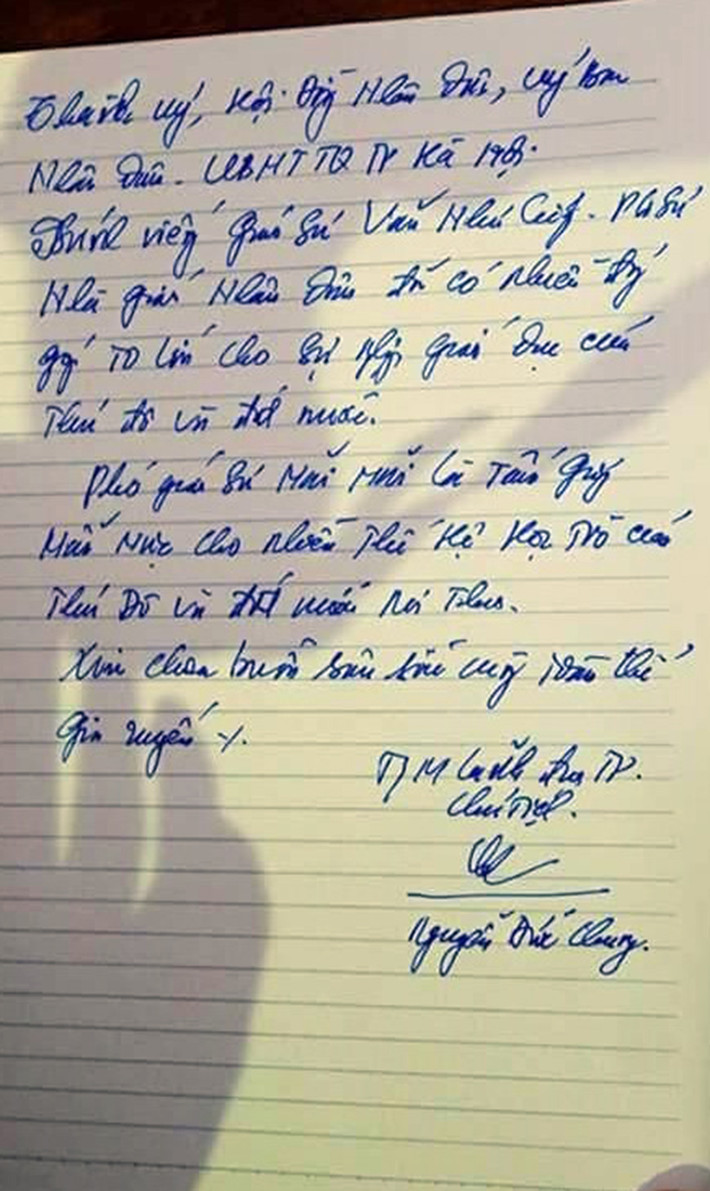 Thành uỷ, Hội Đồng Nhân Dân, Uỷ ban
Nhân Dân. UBMTTQ TP Hà Nội.
Kính viếng Giáo Sư Văn Như Cương. PGSư
Nhà giáo Nhân Dân đã có nhiều đóng
góp to lớn cho sự nghiệp giáo dục của
Thủ đô và đất nước.
Phó giáo sư Mãi Mãi là Tấm gương
Mẫu Mực cho nhiều Thế Hệ Học Trò của
Thủ Đô và đất nước noi Theo.
Xin chia buồn sâu sắc cùng toàn thể
Gia quyến ./.
T/M Lãnh đạo TP.
Chủ Tịch.
Nguyễn Đức Chung.